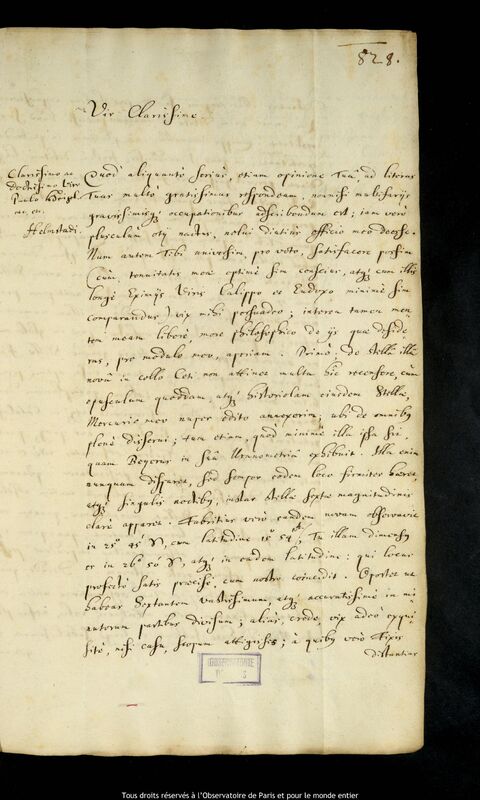 828.
Vir Clarissime
Clarissimo ac
doctissimo Viro
Paulo Heigel
ac. etc.
Helmstadi.
Quod aliquantò seriùs, etiam opinione Tuâ, ad literas
Tuas multò gratissimas respondeam, nonnisi multifarijs
gravissimisq; occupationibus adscribendum est; iam verò
plusculùm otij nactus, nolui diutiùs officio meo deesse.
Num autem Tibi universim, pro voto, satisfacere possim
(cùm tenuitatis meae optimè sim conscius, atq; cum illis
longè Eximijs Viris Calippo et Eudoxo minimè sim
comparandus) vix mihi persuadeo; interea tamen men
tem meam liberè, more philosophico de ijs quae deside
ras, pro modulo meo, aperiam. Primò, de Stella illa
nova in collo Ceti non attinet multa hic recensere, cùm
opusculum quoddam, atq; historiolam eiusdem Stellae,
Mercurio meo nuper edito annexerim; ubi de omnibus
plenè disserui; tum etiam, quod minimè illa ipsa sit,
quam Bayerus in suâ Uranometriâ exhibuit. Illa enim
nunquam disparet, sed semper eodem loco firmiter haeret,
atq; singulis noctibus, instar Stellae sextae magnitudinis
clarè apparet. Fabritius verò eandem novam observavit
in 25° 45' ♈, cum latitudine 15° 54'; Tu illam dimensus
es in 26° 50' ♈, atq; in eadem latitudine: qui locus
profectò satis praecisè, cum nostro coincidit. Oportet ut
habeas Sextantem vastissimum, atq; accuratissimè in mi
nutorum partibus divisum; aliàs, credo, vix adeò exqui
sitè, nisi casu, scopum attigisses; à quibus verò Fixis
distantias
OBSERVATOIRE
DE PARIS
Tous droits réservés à l'Observatoire de Paris et pour le monde entier